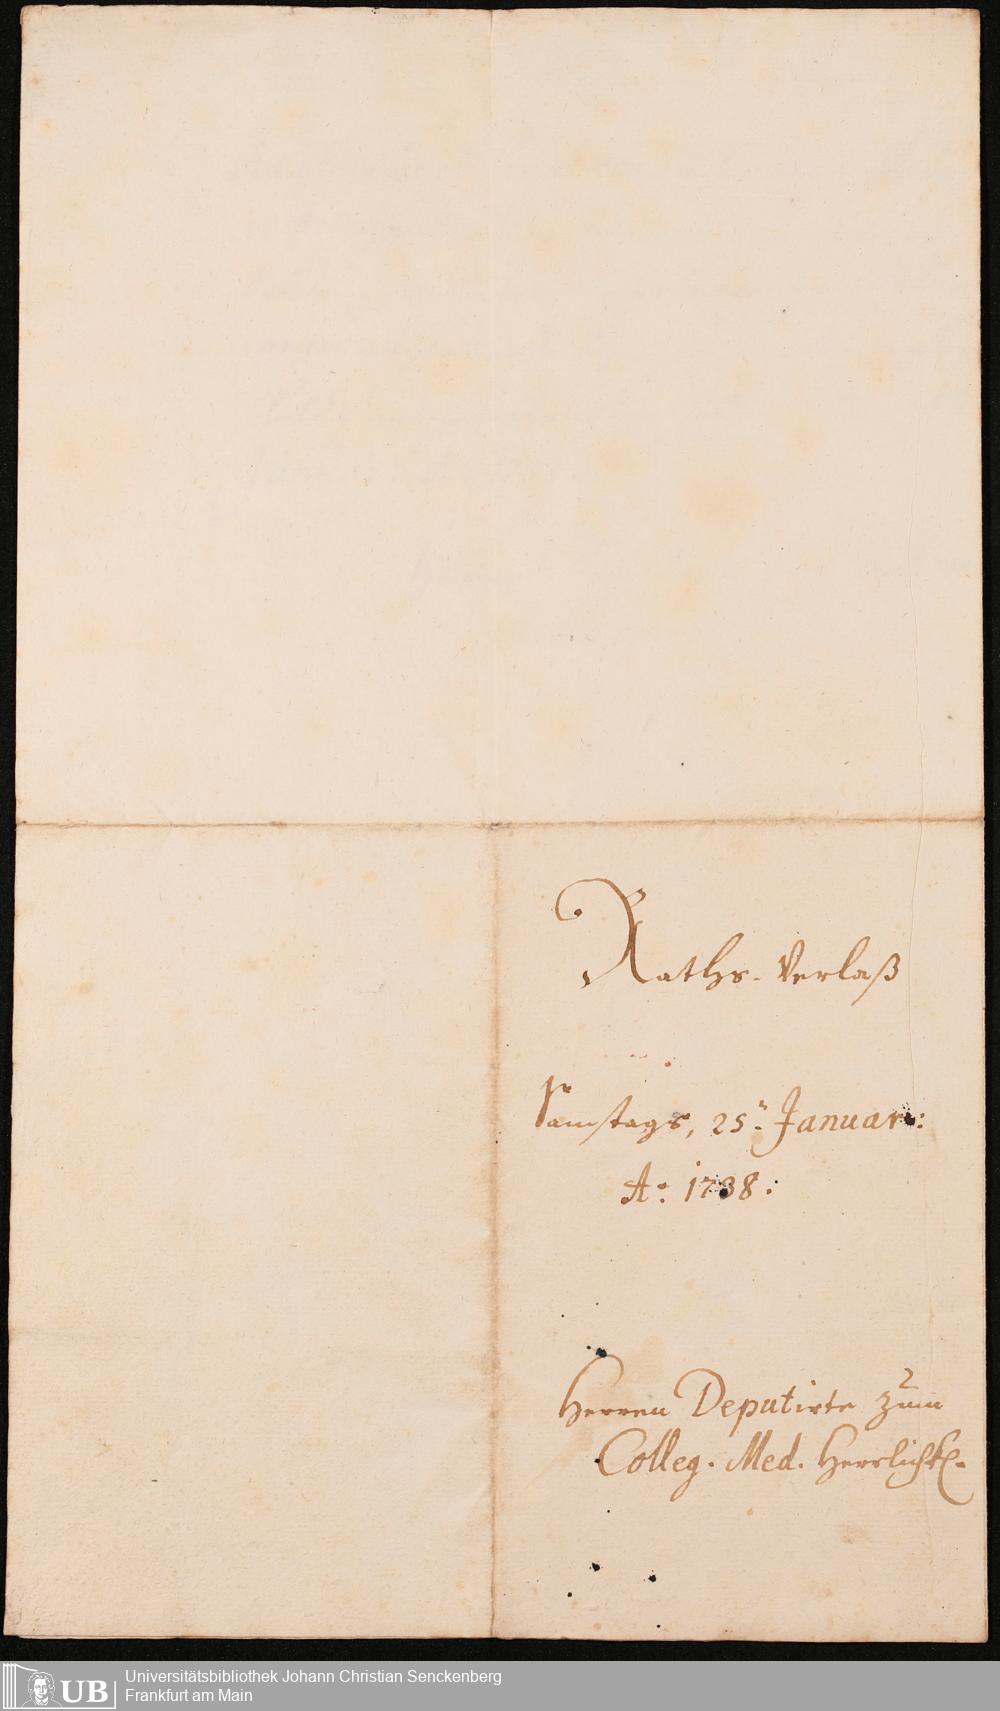 Raths-Verlaß
Samstags, 25.ⁿ Januar:
Aº: 1738.
Herren Deputirte zum
Colleg. Med. Herrlichk.
UB
Universitätsbibliothek Johann Christian Senckenberg
Frankfurt am Main